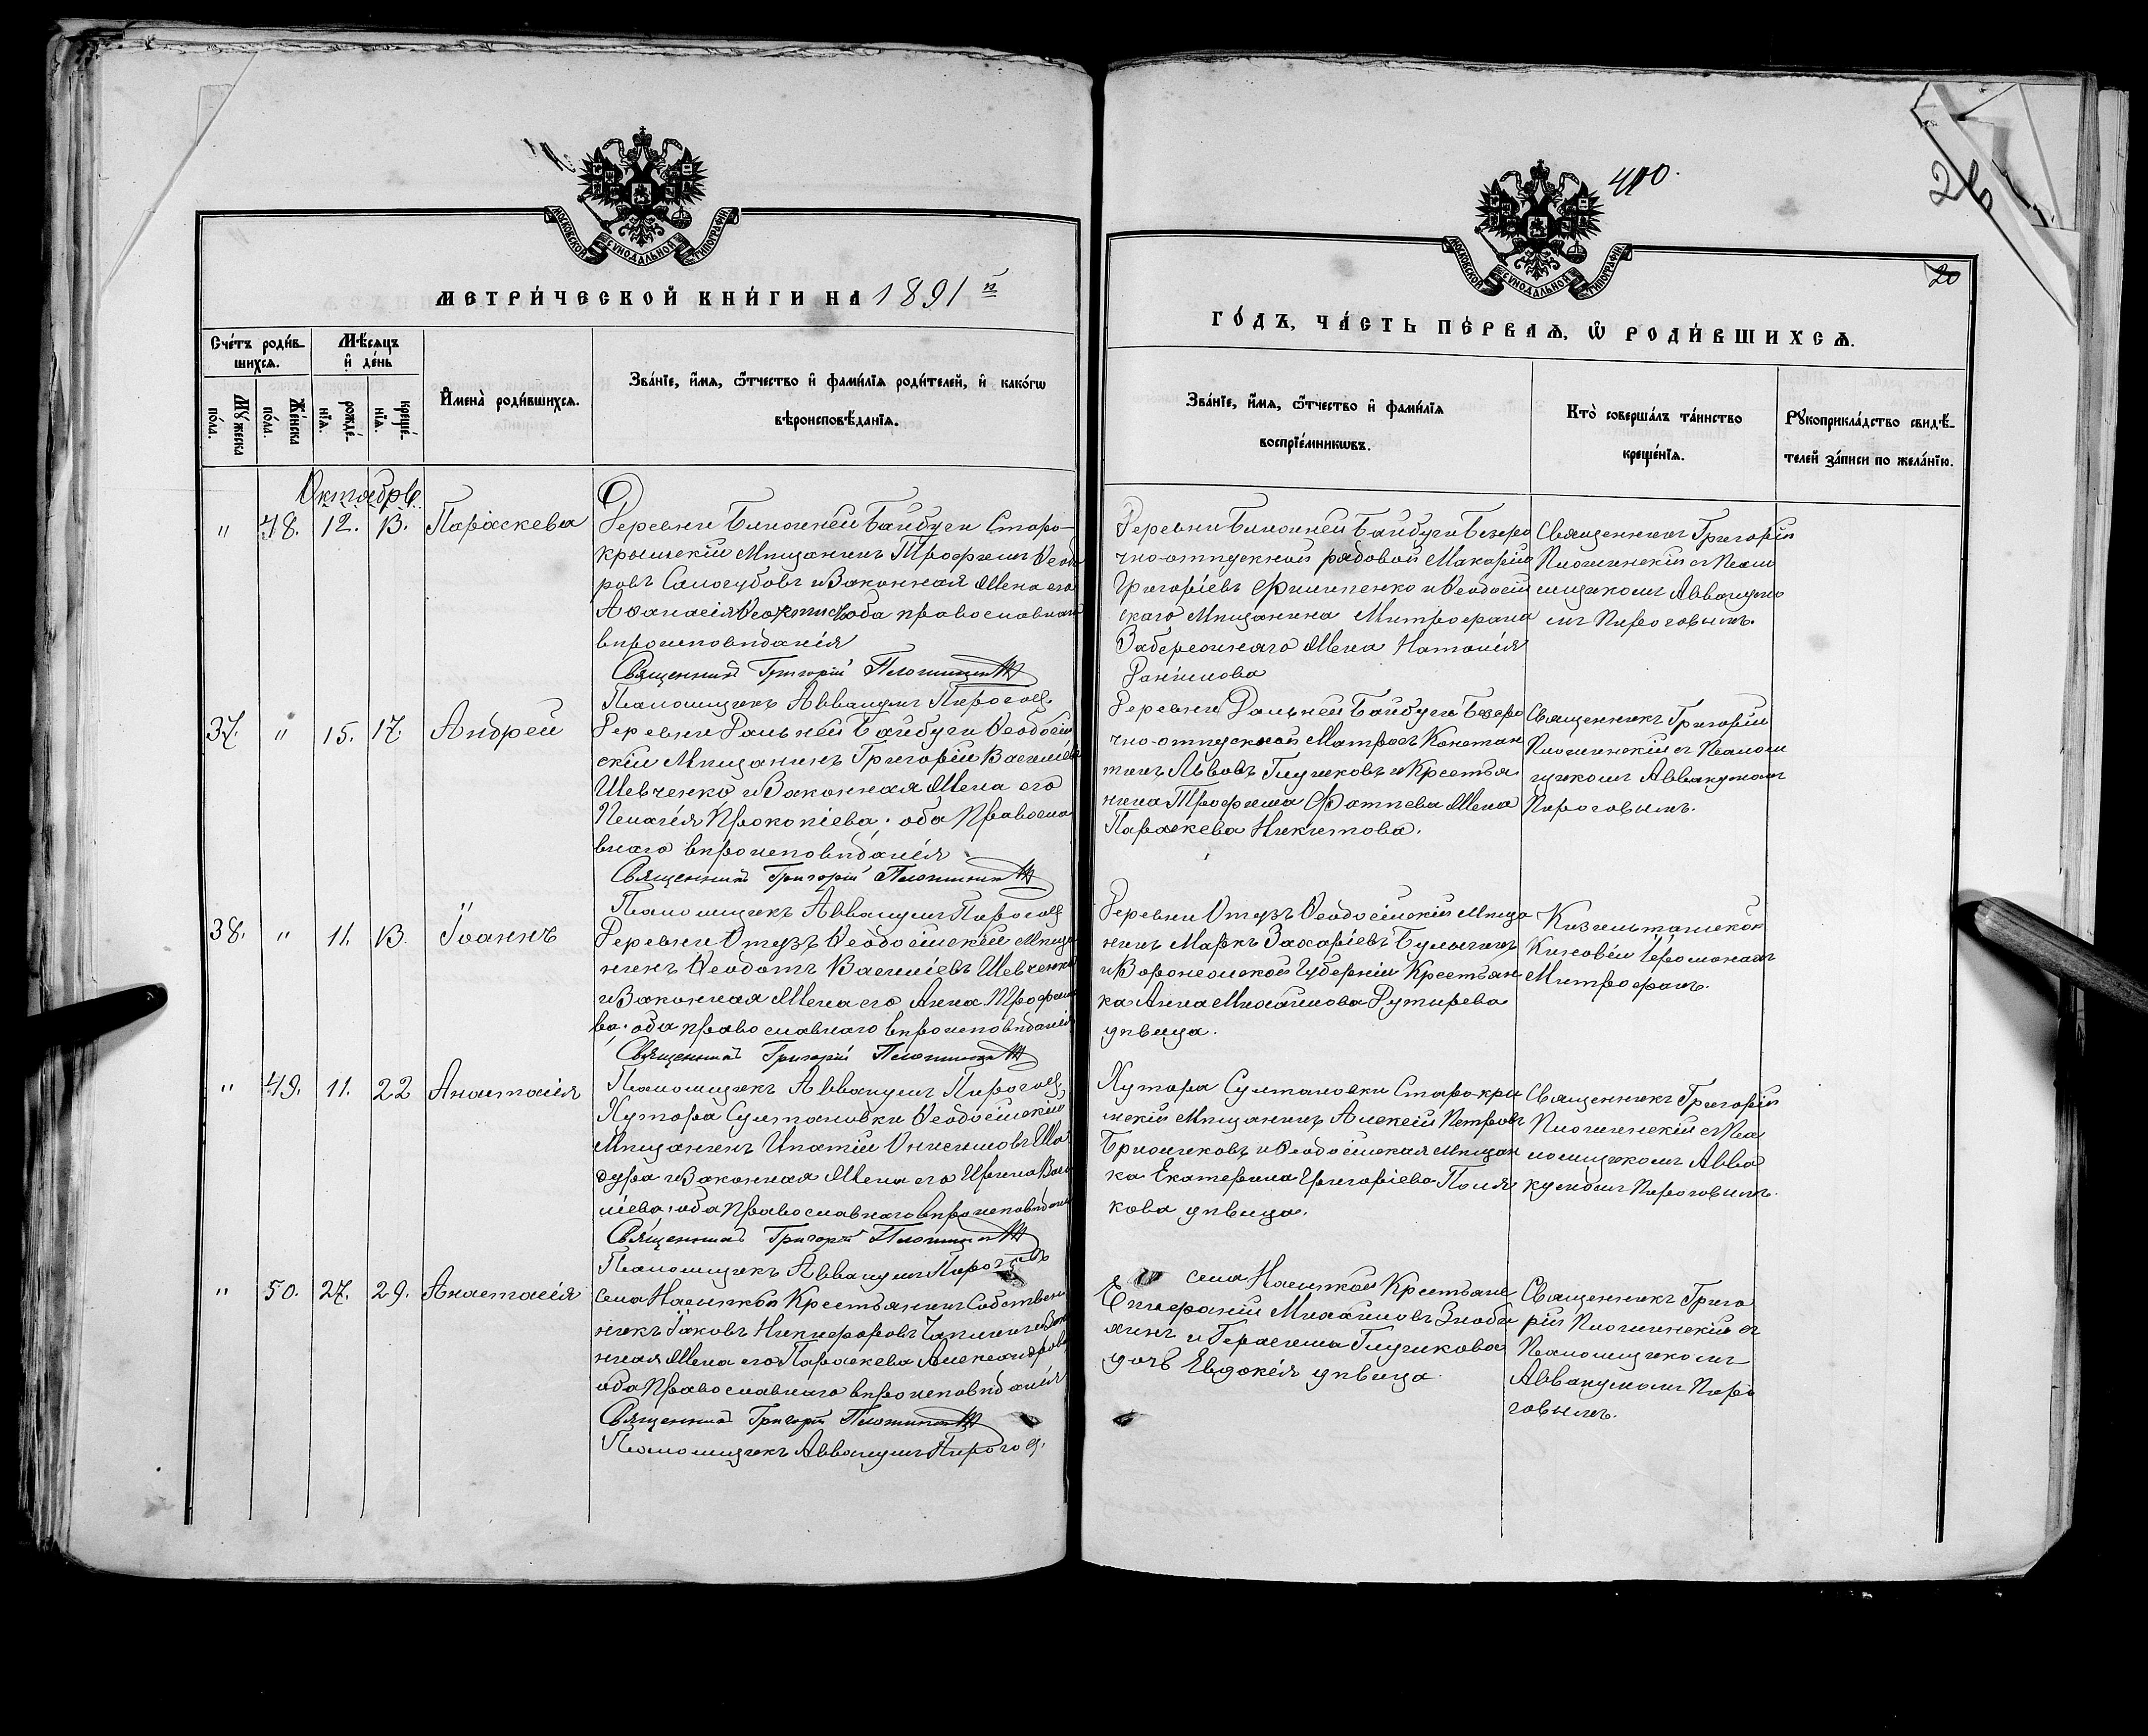 400.
26
20
МОСКОВСКОЙ СѴНОДАЛЬНОЙ ТИПОГРАФІИ
МЕТРИ́ЧЕСКОЙ КНИ́ГИ НА 1891й
Сче́тъ роди́в-
шихсѧ.
Мѣ́сѧцъ
и҆ де́нь
Мꙋ́жеска
пола.
Же́нска
пола.
рожде́-
нїѧ.
креще́-
нїѧ.
И҆мена̀ роди́вшихсѧ.
Зва́нїе, и҆́мѧ, ѻ҆́тчество и҆ фами́лїѧ роди́телей, и҆ како́гѡ
вѣроисповѣ́данїѧ.
Октябрь
" 48. 12. 13. Параскева
Деревни Ближней Байбуги Старо-
крымскій Мѣщанинъ Трофимъ Ѳеодо
ровъ Самогубовъ и Законная Жена его
Аѳанасія оба православнаго
вѣроисповѣданія
Священникъ Григорій
Псаломщикъ Аввакумъ Пироговъ
37. " 15. 17. Андрей
Деревни Дальней Байбуги Ѳеодосій
скій Мѣщанинъ Григорій Василіевъ
Шевченко и Законная Жена его
Пелагія Прокопіева. оба Православ
внаго вѣроисповѣданія
Священникъ Григорій
Псаломщикъ Аввакумъ Пироговъ
38. " 11. 13. Іоаннъ
Деревни Отузъ Ѳеодосійскій Мѣща
нинъ Ѳеодотъ Василіевъ Шевченко
и Законная Жена его Анна Трофимо
ва. оба православнаго вѣроисповѣданія
Священникъ Григорій
Псаломщикъ Аввакумъ Пироговъ
" 49. 11. 22 Анастасія
Хутора Султановки Ѳеодосійскій
Мѣщанинъ Ипатій Онисимовъ Ша
дура и Законная Жена его Ирина Васи
ліева. оба Православнаго вѣроисповѣданія
Священникъ Григорій
Псаломщикъ Аввакумъ Пироговъ
" 50. 27. 29. Анастасія
села Насыпкой Крестьянинъ Собствен
никъ Іаковъ Никифоровъ и Зако
нная Жена его Параскева Александрова
оба Православнаго вѣроисповѣданія
Священникъ Григорій
Псаломщикъ Аввакумъ Пироговъ.
МОСКОВСКОЙ СѴНОДАЛЬНОЙ ТИПОГРАФІИ
ГО́ДЪ, ЧА́СТЬ ПЕ́РВАѦ, Ѡ҆ РОДИ́ВШИХСѦ.
Зва́нїе, и҆́мѧ, ѻ҆́тчество и҆ фами́лїѧ
воспрїе́мникѡвъ.
Кто̀ соверша́лъ та́инство
креще́нїѧ.
Рꙋкоприкла́дство свидѣ́-
телей за́писи по жела́нїю.
Деревни Ближней Байбуги Безсро
чно-отпускной рядовой Макарій
Григоріевъ Филипенко и Ѳеодосій
скаго Мѣщанина Митрофана
Забережнаго Жена Наталія
Данилова
Священникъ Григорій
съ Псалом
щикомъ Аввакумо
мъ Пироговымъ.
Деревни Дальней Байбуги Безсро
чно-отпускной Матросъ Констан
тинъ Львовъ Глушковъ и Крестья
нина Трофима Фатѣева Жена
Параскева Никитова.
Священникъ Григорій
съ Псалом
щикомъ Аввакумомъ
Пироговымъ.
Деревни Отузъ Ѳеодосійскій Мѣща
нинъ Маркъ Захаріевъ
и Воронежской Губерніи Крестьян
ка Анна Михайлова
дѣвица.
Кизильташской
Киновіи Іеромонахъ
Митрофанъ.
Хутора Султановки Старо-кры
мскій Мѣщанинъ Алексій Петровъ
Брюшковъ и Ѳеодосійская Мѣщан
ка Екатерина Григоріева Поля
кова дѣвица.
Священникъ Григорій
съ Пса
ломщикомъ Авва
кумомъ Пироговымъ.
села Насыпкой Крестьяне
Епифаній Михайловъ Зноби
хинъ и Герасима Глушкова
дочь Евдокія дѣвица.
Священникъ Григо
рій съ
Псаломщикомъ
Аввакумомъ Пиро
говымъ.